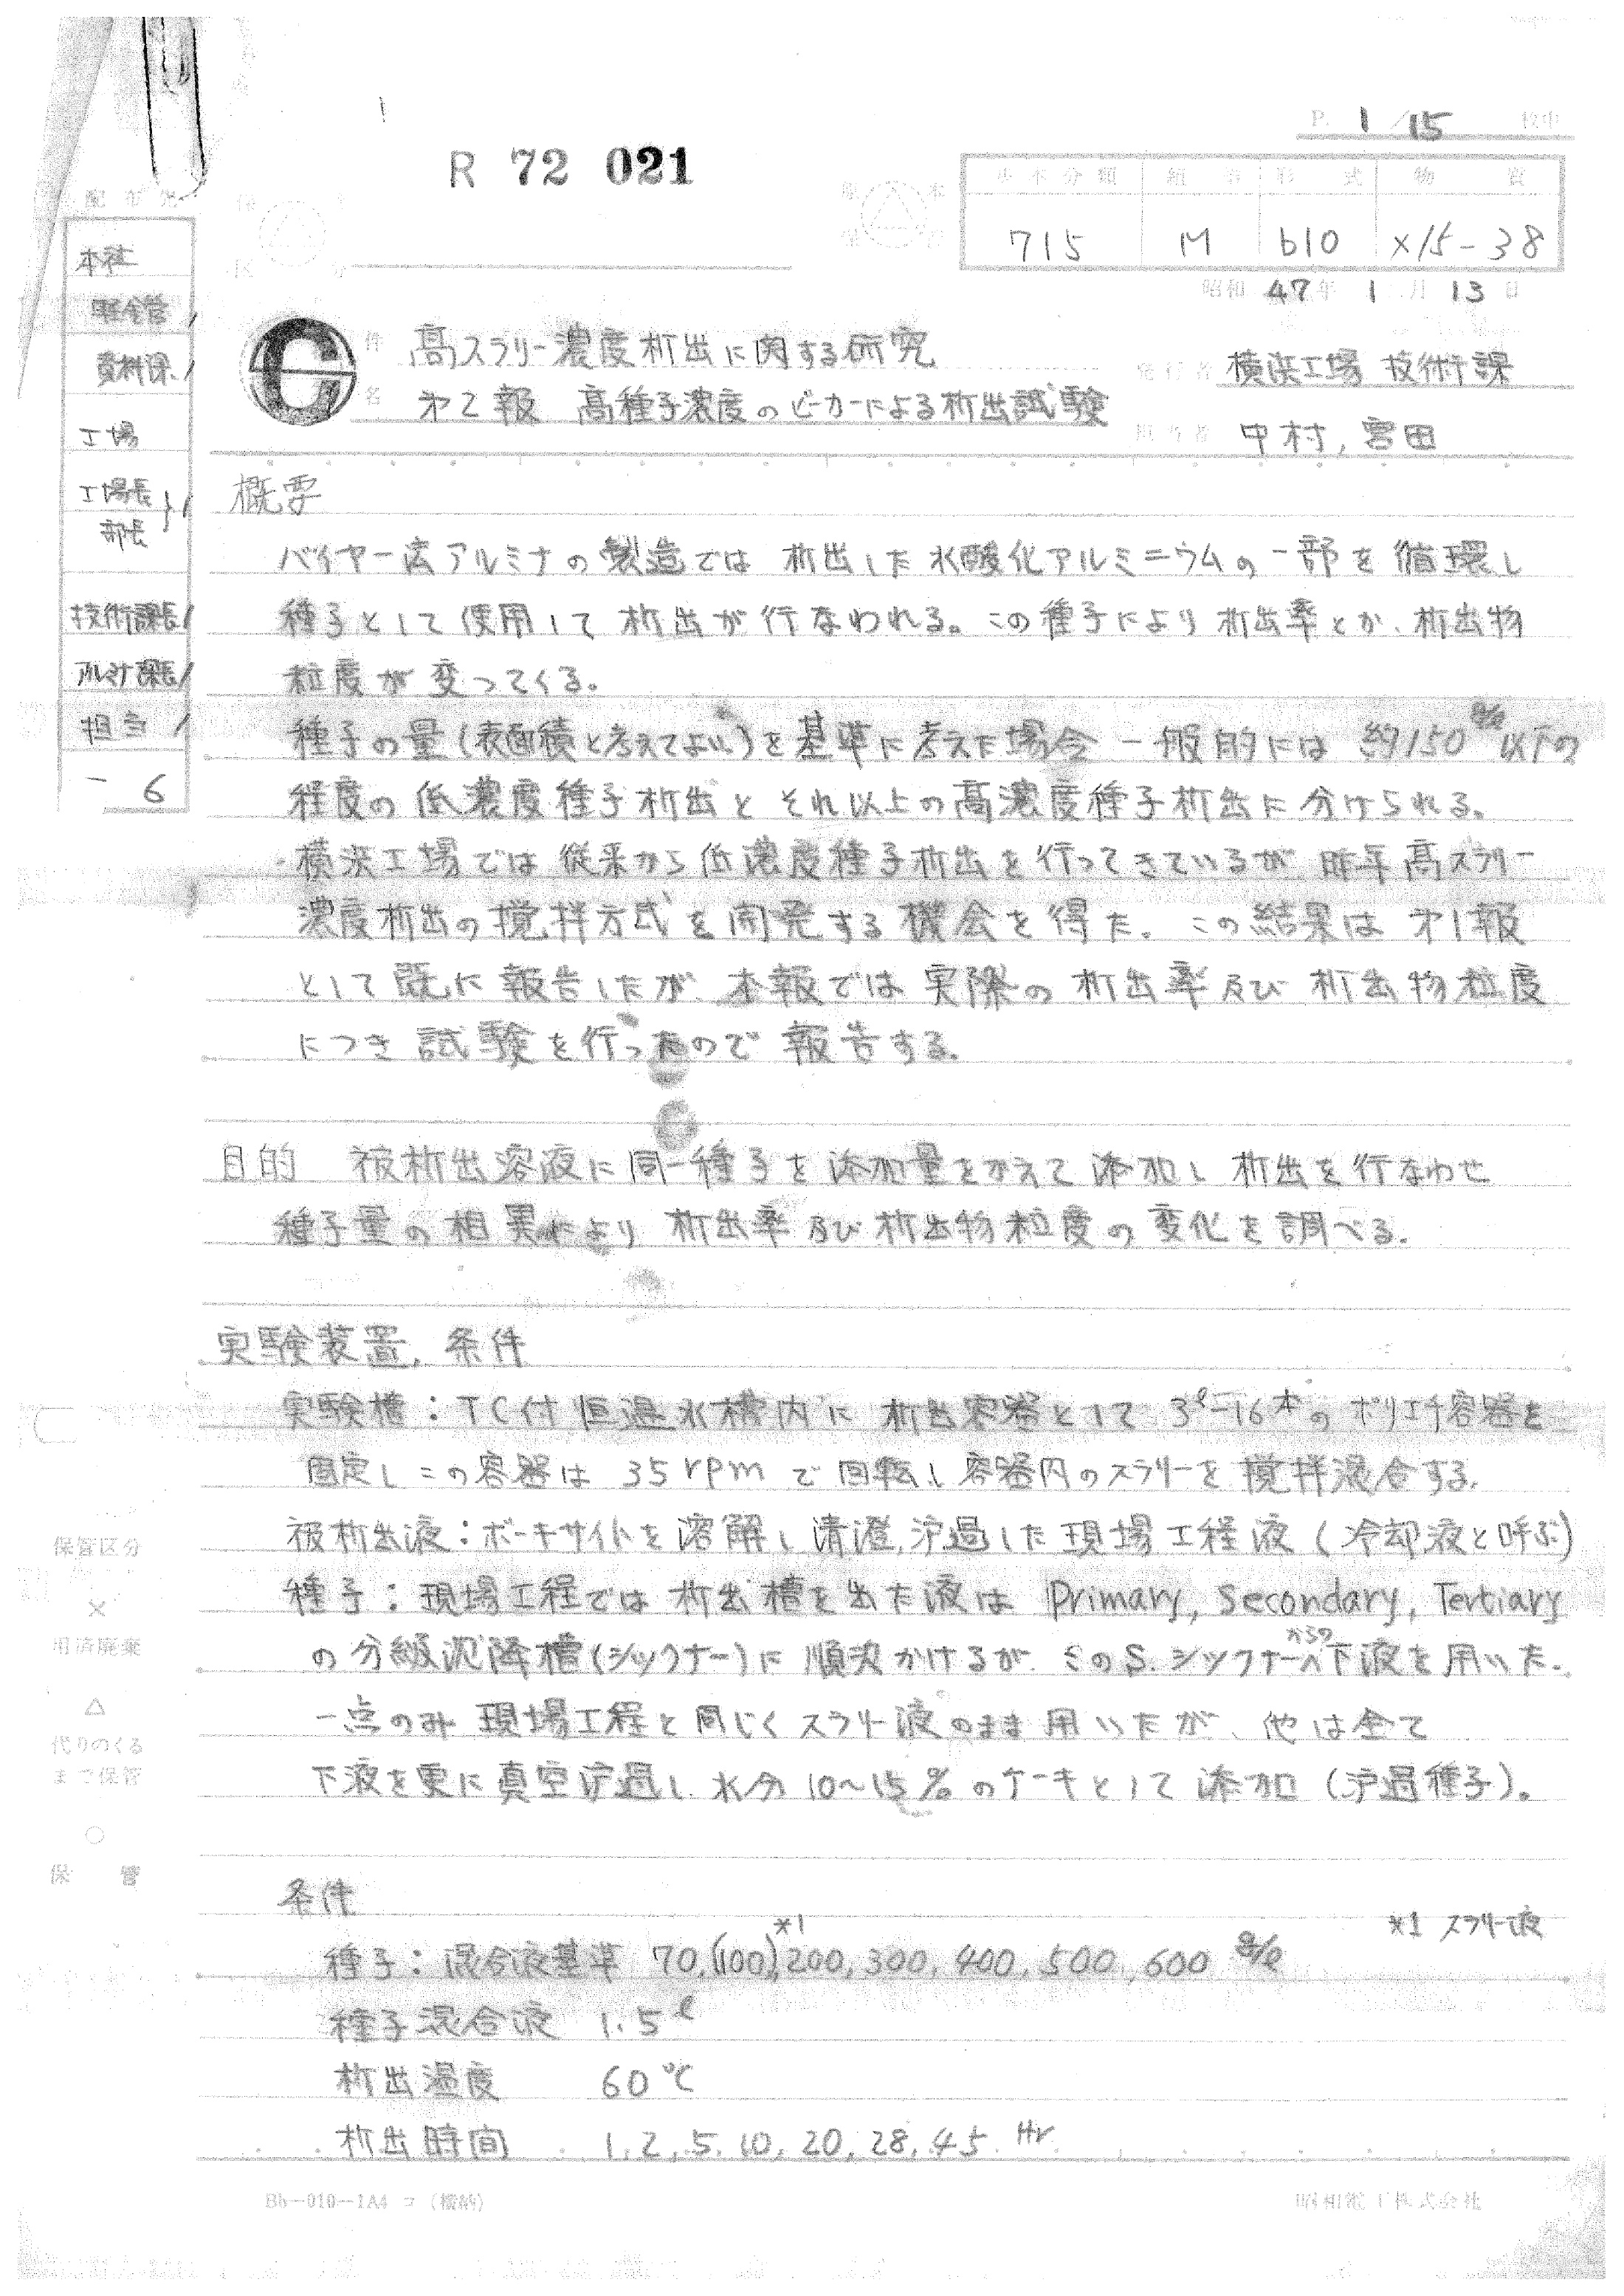 P. 1/15 枚中
R 72 021
配布先
本社
軽金管
資料課
工場
工場長
部長
技術課長
アルミナ課長
担当
6
基本分類 組 形式 物質
715 M b10 X15-38
昭和 47年 1月 13日
件名 高スラリー濃度析出に関する研究
第2報 高種子濃度のビーカーによる析出試験
発行者 横浜工場 技術課
担当者 中村, 宮田
概要
バイヤー法アルミナの製造では 析出した水酸化アルミニウムの一部を循環し
種子として使用して析出が行なわれる。この種子により析出率とか、析出物
粒度が変ってくる。
種子の量(表面積と考えてよい)を基準に考えた場合 一般的には 約150 g/l 以下の
程度の低濃度種子析出と それ以上の高濃度種子析出に分けられる。
横浜工場では従来から低濃度種子析出を行ってきているが 昨年高スラリー
濃度析出の撹拌方式を開発する機会を得た。この結果は第1報
として既に報告したが、本報では実際の析出率及び析出物粒度
につき試験を行ったので報告する。
目的 被析出溶液に同一種子を添加量をかえて添加し析出を行なわせ
種子量の相異により析出率及び析出物粒度の変化を調べる。
実験装置, 条件
実験槽:TC付恒温水槽内に析出容器として 3ℓ-16本のポリエチ容器を
固定しこの容器は 35rpm で回転し容器内のスラリーを撹拌混合する。
被析出液:ボーキサイトを溶解し清澄,沪過した現場工程液(冷却液と呼ぶ)
種子:現場工程では析出槽を出た液は Primary, Secondary, Tertiary
の分級沈降槽(シックナー)に順次かけるが、そのS.シックナーからの下液を用いた。
一点のみ現場工程と同じくスラリー液のまま用いたが、他は全て
下液を更に真空沪過し水分10~15%のケーキとして添加(沪過種子)。
条件
種子:混合液基準 70,(100)*1,200,300,400,500,600 g/ℓ
*1 スラリー液
種子混合液 1.5ℓ
析出温度 60℃
析出時間 1, 2, 5, 10, 20, 28, 45 Hr
保管区分
×
用済廃棄
△
代りのくる
まで保管
○
保管
Bb-010-1A4
昭和電工株式会社